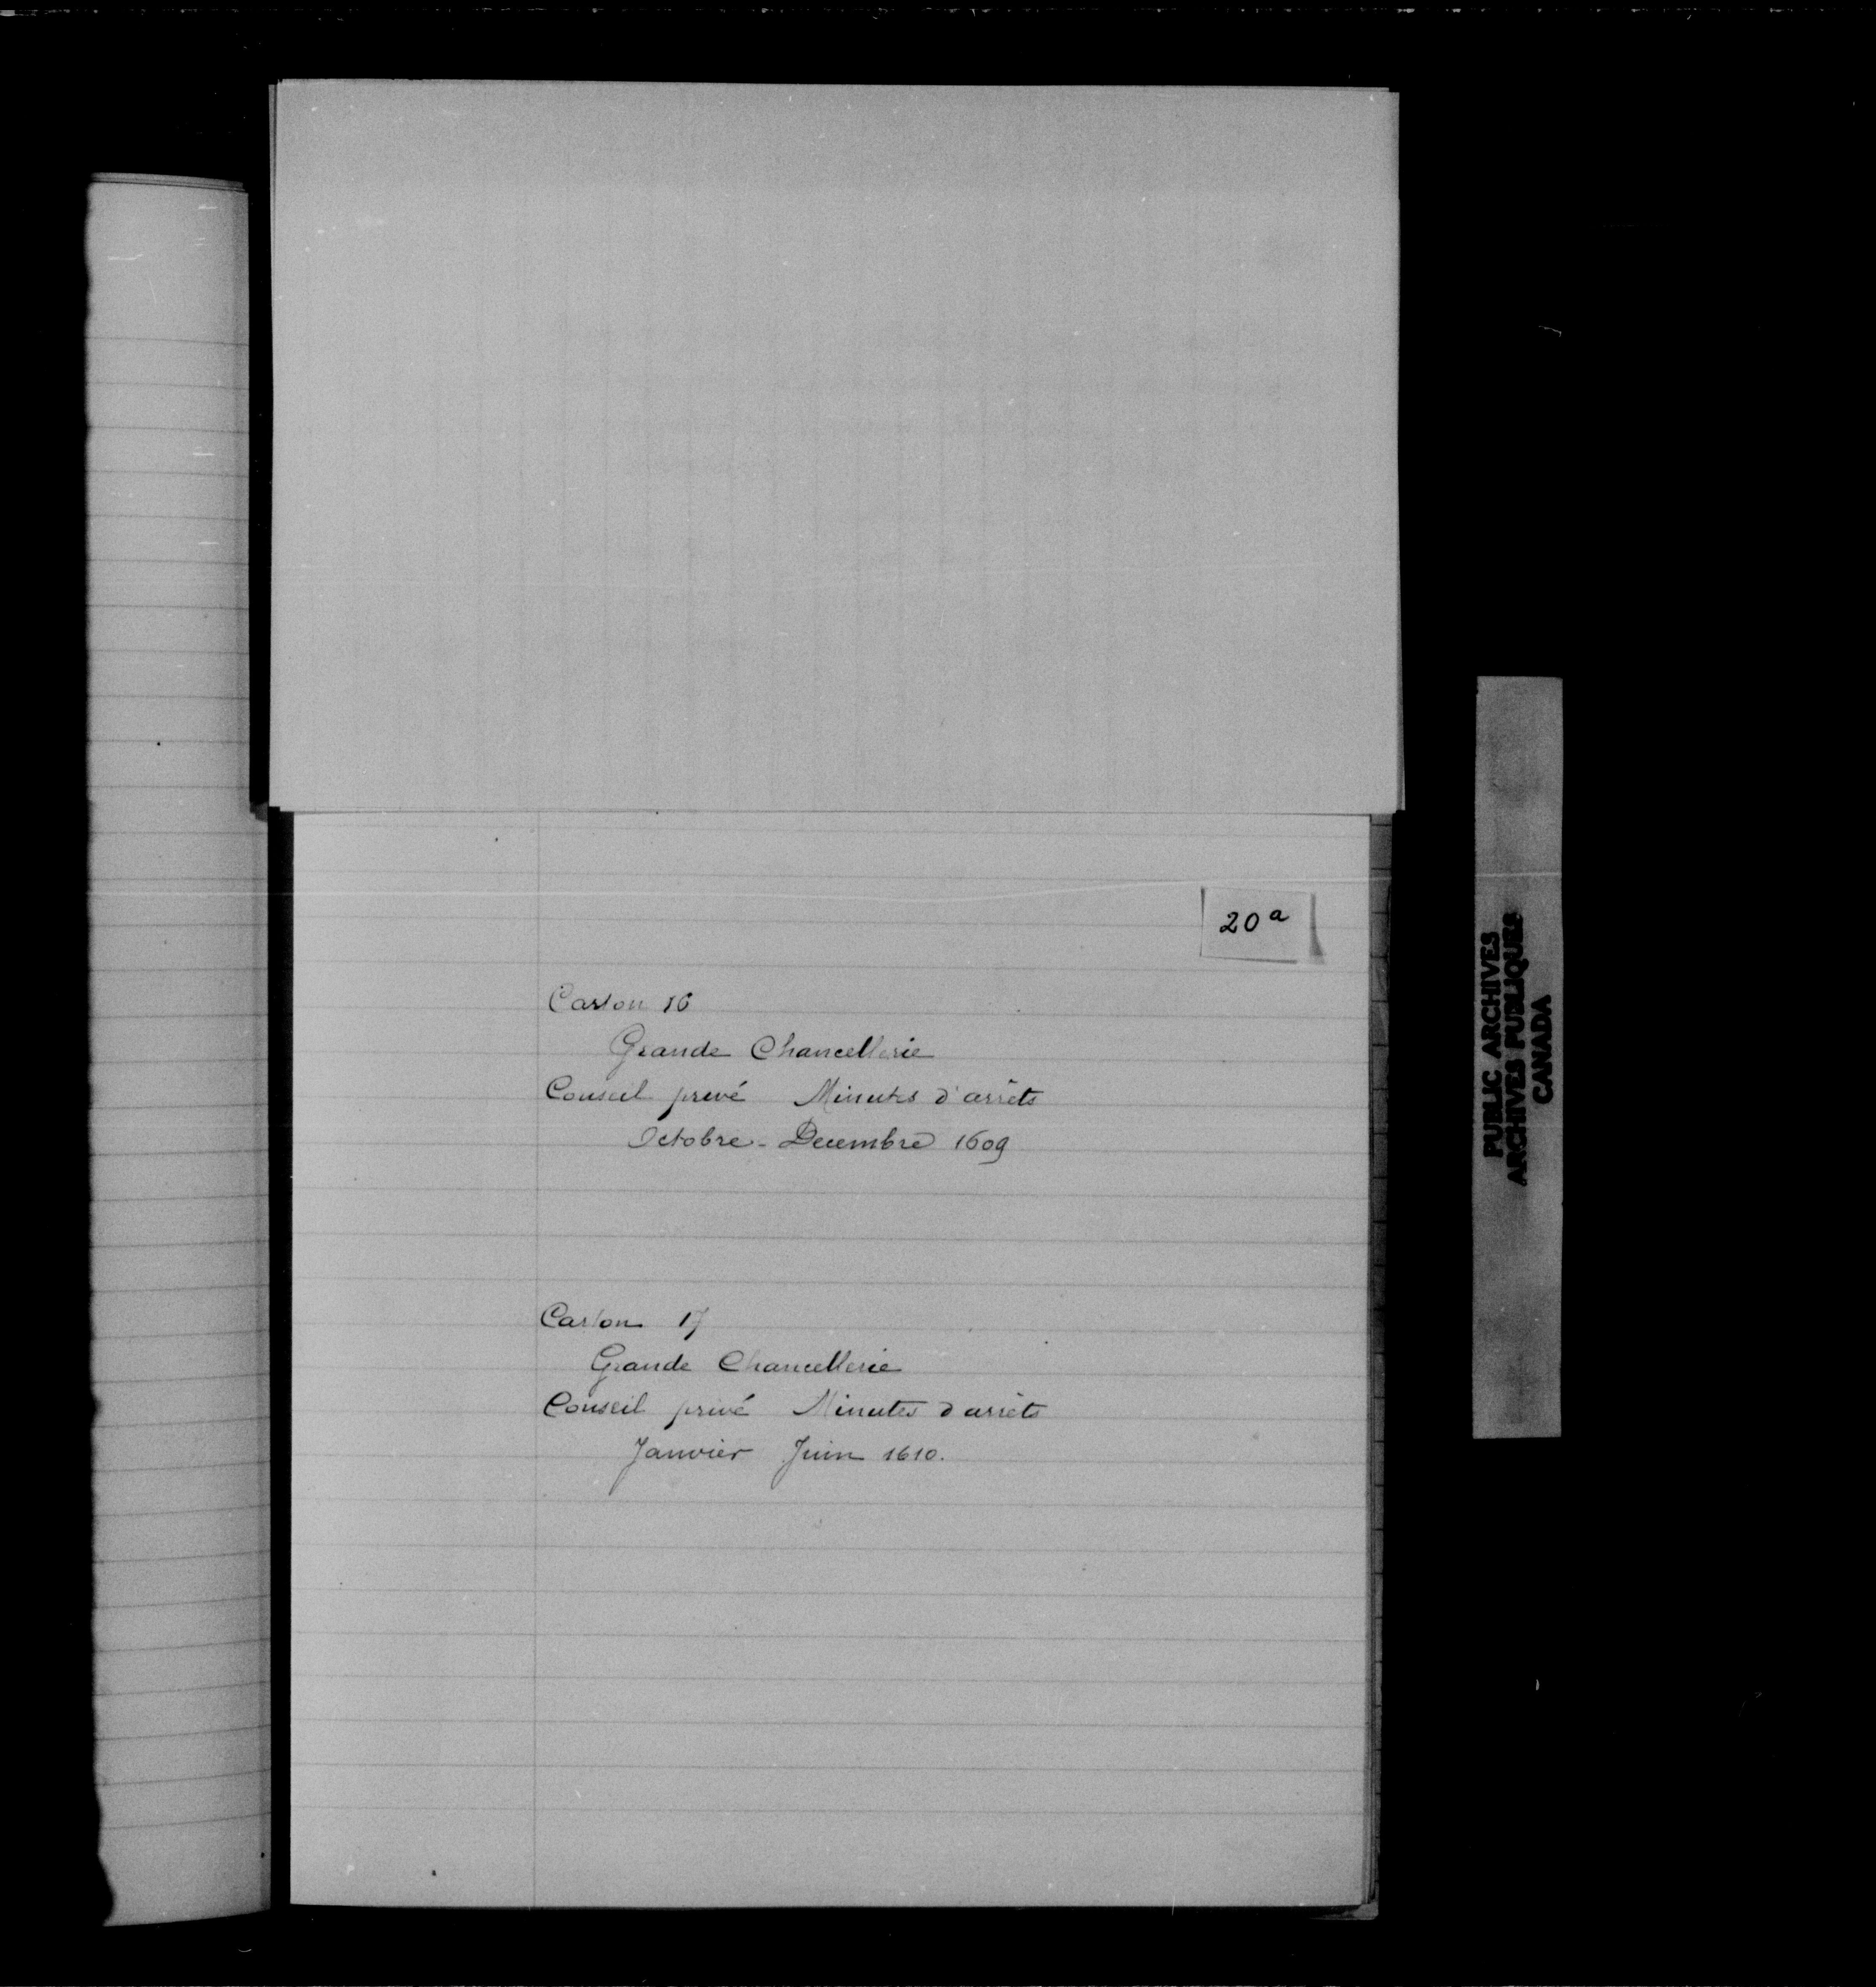 20 a
Carton 16
Grande Chancellerie
Conseil privé Minutes d'arrêts
Octobre - Decembre 1609
Carton 17
Grande Chancellerie
Conseil privé Minutes d'arrêts
Janvier Juin 1610.
PUBLIC ARCHIVES
ARCHIVES PUBLIQUES
CANADA